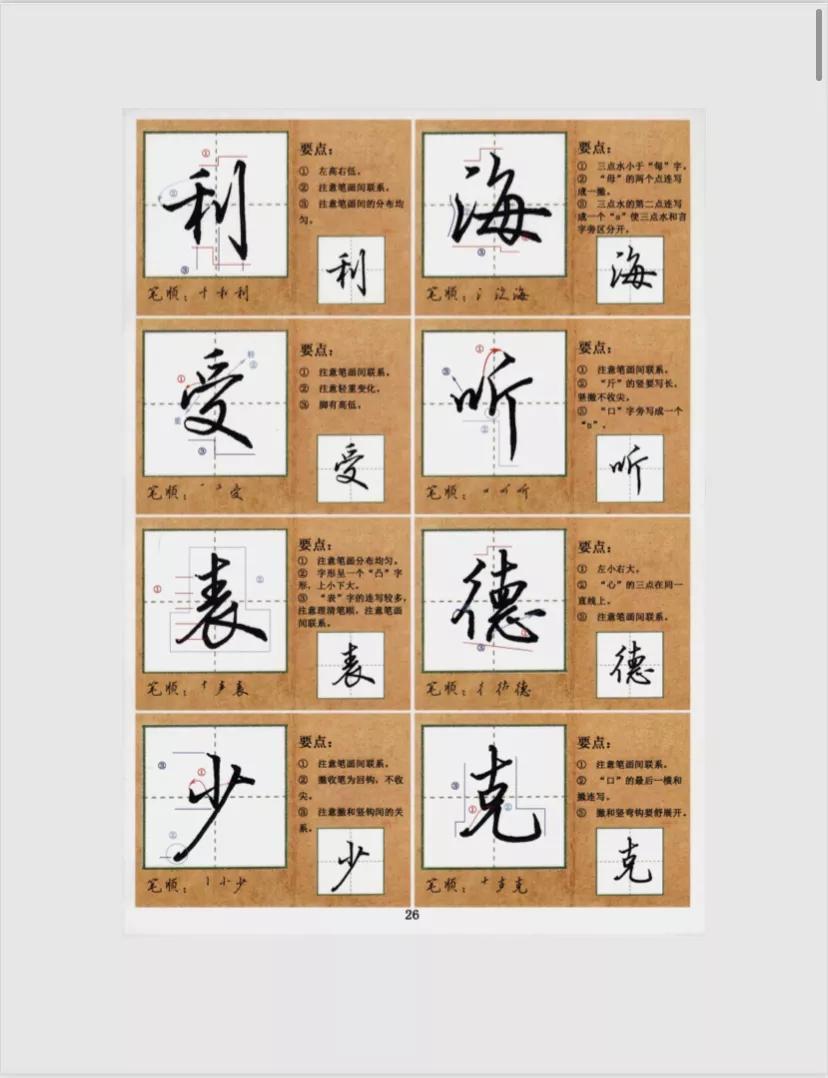 利
要点：
① 左高右低。
② 注意笔画间联系。
③ 注意笔画间的分布均
匀。
利
笔顺：
利
海
要点：
① 三点水小于“每”字。
② “母”的两个点连写
成一撇。
③ 三点水的第二点连写
成一个“s”使三点水和言
字旁区分开。
海
笔顺：
海
受
轻
重
要点：
① 注意笔画间联系。
② 注意轻重变化。
③ 脚有高低。
受
笔顺：
受
听
要点：
① 注意笔画间联系。
② “斤”的竖要写长，
竖撇不收尖。
③ “口”字旁写成一个
听
笔顺：
听
表
要点：
① 注意笔画分布均匀。
② 字形呈一个“凸”字
形，上小下大。
③ “表”字的连写较多，
注意理清笔顺，注意笔画
间联系。
表
笔顺：
表
德
要点：
① 左小右大。
② “心”的三点在同一
直线上。
③ 注意笔画间联系。
德
笔顺：
德
少
要点：
① 注意笔画间联系。
② 撇收笔为回钩，不收
尖。
③ 注意撇和竖钩间的关
系。
少
笔顺：
小少
克
要点：
① 注意笔画间联系。
② “口”的最后一横和
撇连写。
③ 撇和竖弯钩要舒展开。
克
笔顺：
克
26